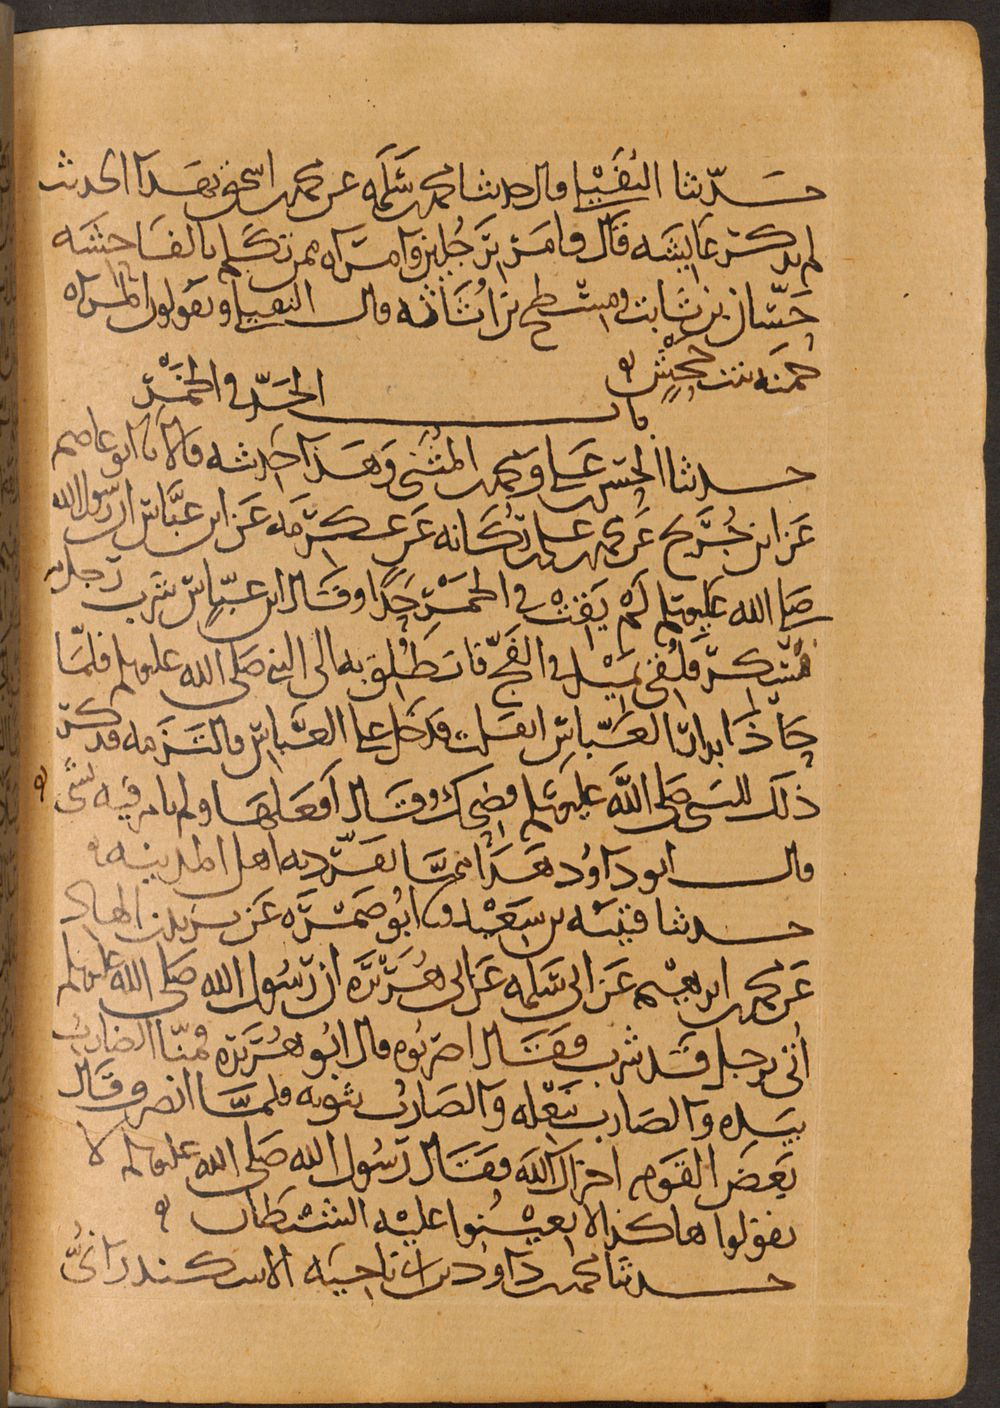 حدثنا النفيلي قال حدثنا محمد بن سلمة عن محمد بن اسحق بهذا الحديث
لم يذكر عايشه قال فامر برجلين وامراه ممن تكلم بالفاحشه
حسان بن ثابت ومسطح بن اثاثه قال النفيلي ويقولون المراه
حمنه بنت جحش ه
باب الحد في الخمر
حدثنا الحسن بن علي ومحمد بن المثنى وهذا حديثه قالا نا ابو عاصم
عن ابن جريج عن محمد بن علي بن ركانه عن عكرمه عن ابن عباس ان رسول الله
صلى الله عليه وسلم لم يقت في الخمر حدا وقال ابن عباس شرب رجل
فسكر فلقي يميل في الفج فانطلق به الى النبي صلى الله عليه وسلم فلما
حاذا بدار العباس انفلت فدخل على العباس فالتزمه فذكر
ذلك للنبي صلى الله عليه وسلم فضحك وقال افعلها ولم يامر فيه بشي ه
قال ابو داود هذا مما تفرد به اهل المدينه ه
حدثنا قتيبه بن سعيد نا ابو ضمره عن يزيد بن الهاد
عن محمد بن ابرهيم عن ابي سلمه عن ابي هريره ان رسول الله صلى الله عليه وسلم
اتي برجل قد شرب فقال اضربوه قال ابو هريره فمنا الضارب
بيده والضارب بنعله والضارب بثوبه فلما انصرف قال
بعض القوم اخزاك الله فقال رسول الله صلى الله عليه وسلم لا
تقولوا هاكذا لا تعينوا عليه الشيطان ه
حدثنا محمد بن داود بن ابي ناجيه الاسكندراني